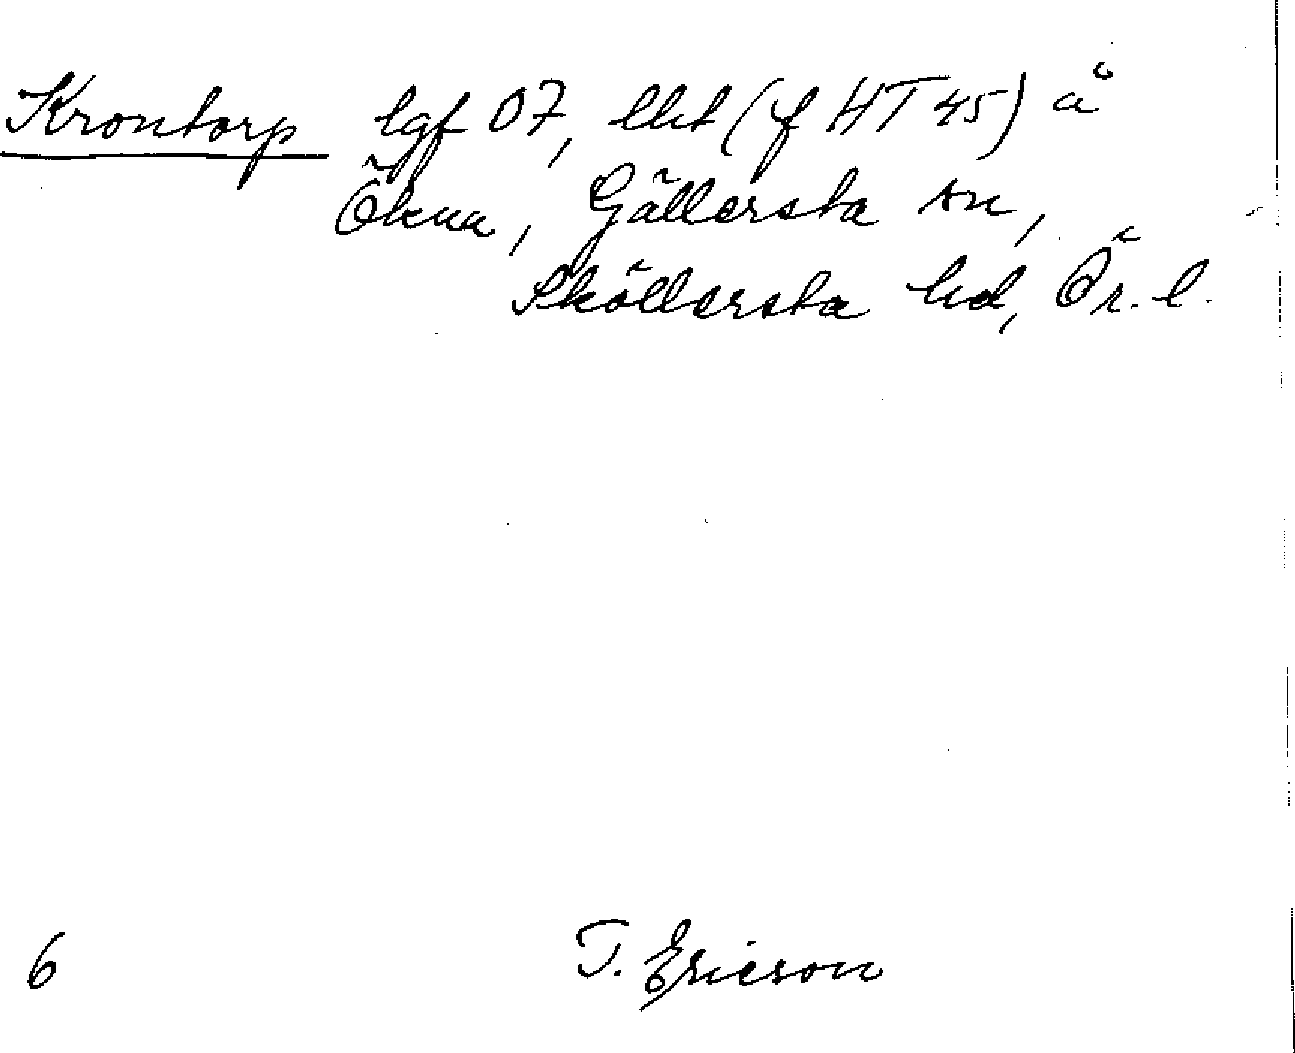 Krontorp lgf 07, lht (f HT 45) å
Ökna, Gällersta sn,
Sköllersta hd, Ör. l.
6 T. Ericson